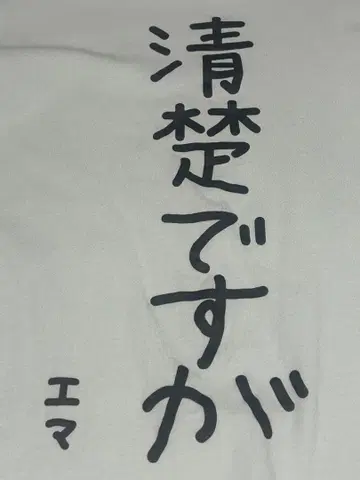 清楚ですが
エマ